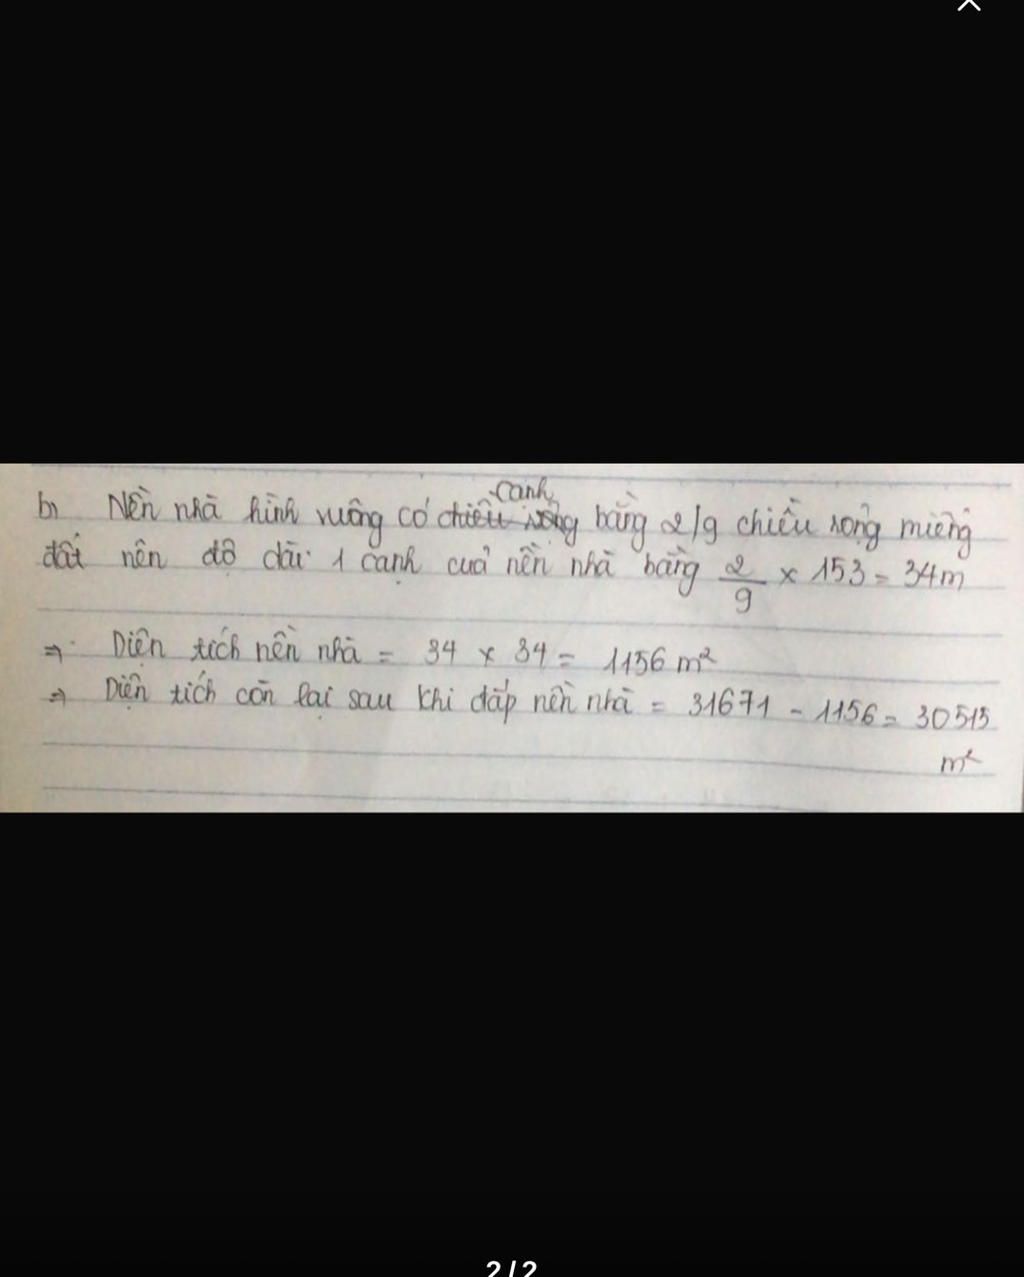 b, Nền nhà hình vuông có chiều rộng cạnh bằng 2/9 chiều rộng miếng
đất nên độ dài 1 cạnh của nền nhà bằng 2/9 x 153 = 34m
=> Diện tích nền nhà = 34 x 34 = 1156 m²
=> Diện tích còn lại sau khi đắp nền nhà = 31671 - 1156 = 30515
m²
2/2